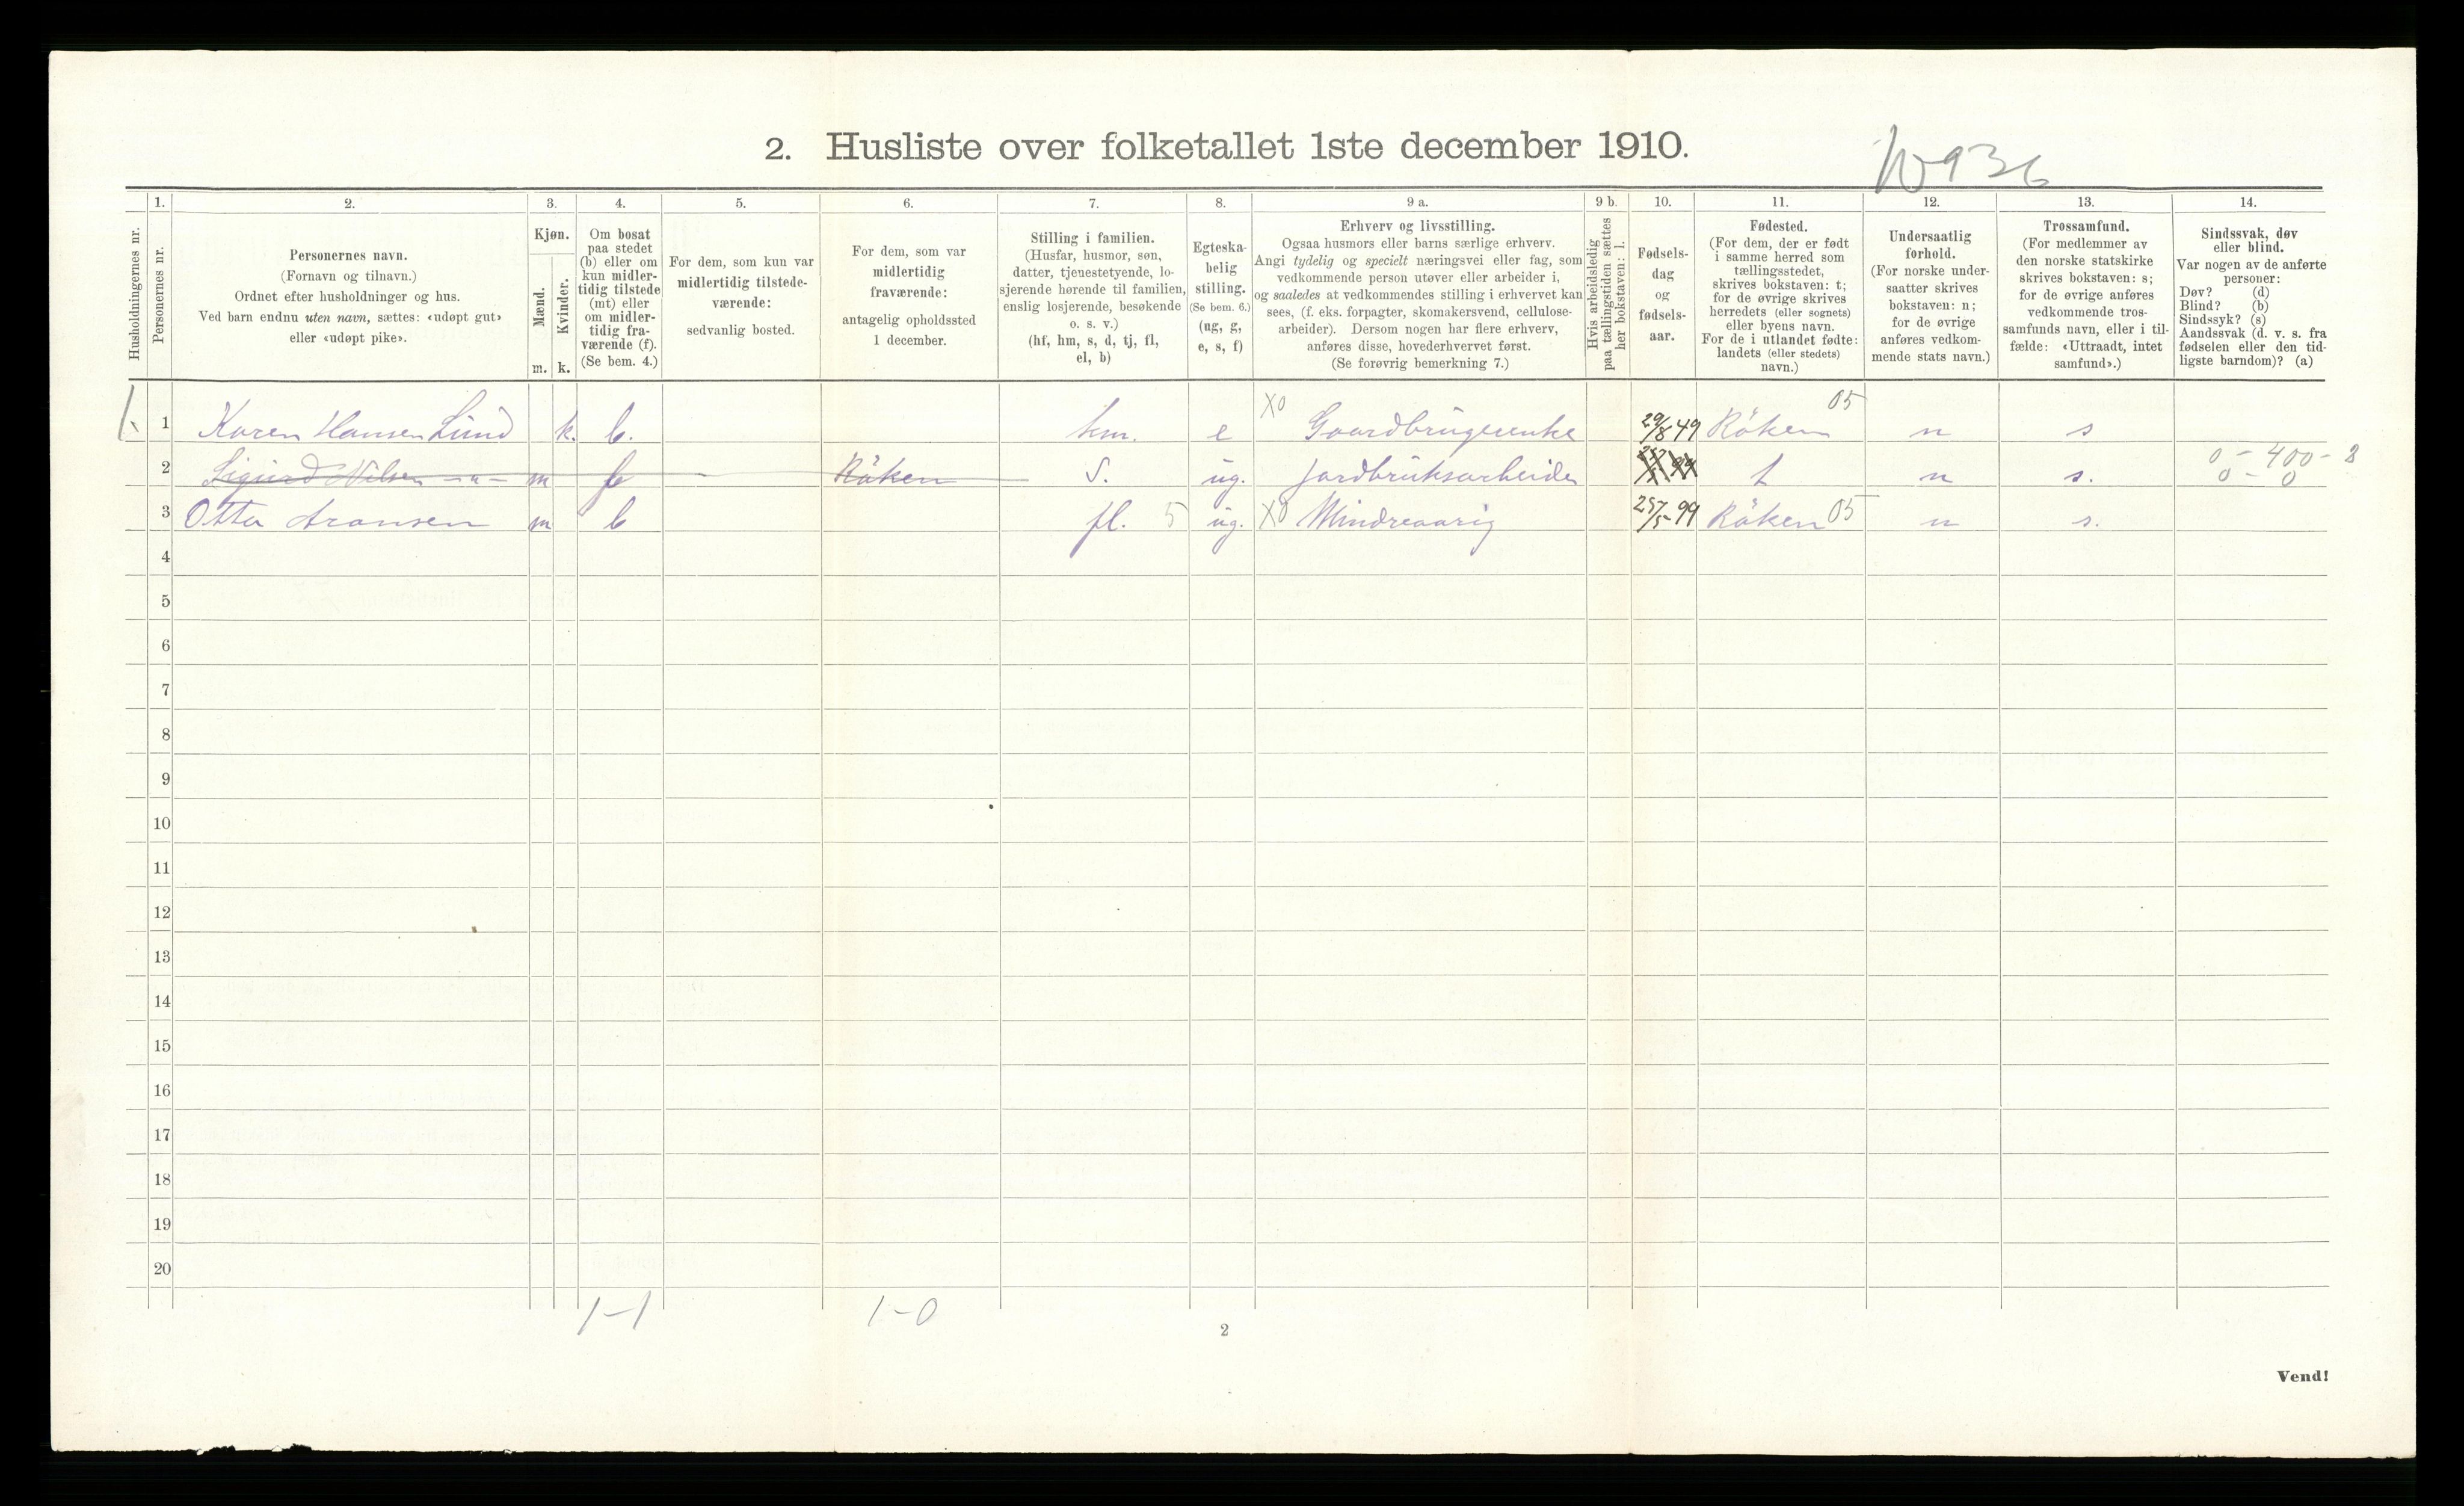 2. Husliste over folketallet 1ste december 1910.
1. 2. 3. 4. 5. 6. 7. 8. 9 a. 9 b. 10. 11. 12. 13. 14.
Husholdningernes nr.
Personernes nr.
Personernes navn.
(Fornavn og tilnavn.)
Ordnet efter husholdninger og hus.
Ved barn endnu uten navn, sættes: «udøpt gut»
eller «udøpt pike».
Kjøn.
Mænd.
m.
Kvinder.
k.
Om bosat
paa stedet
(b) eller om
kun midler-
tidig tilstede
(mt) eller
om midler-
tidig fra-
værende (f).
(Se bem. 4.)
For dem, som kun var
midlertidig tilstede-
værende:
sedvanlig bosted.
For dem, som var
midlertidig
fraværende:
antagelig opholdssted
1 december.
Stilling i familien.
(Husfar, husmor, søn,
datter, tjenestetyende, lo-
sjerende hørende til familien,
enslig losjerende, besøkende
o. s. v.)
(hf, hm, s, d, tj, fl,
el, b)
Egteska-
belig
stilling.
(Se bem. 6.)
(ug, g,
e, s, f)
Erhverv og livsstilling.
Ogsaa husmors eller barns særlige erhverv.
Angi tydelig og specielt næringsvei eller fag, som
vedkommende person utøver eller arbeider i,
og saaledes at vedkommendes stilling i erhvervet kan
sees, (f. eks. forpagter, skomakersvend, cellulose-
arbeider). Dersom nogen har flere erhverv,
anføres disse, hovederhvervet først.
(Se forøvrig bemerkning 7.)
Hvis arbeidsledig
paa tællingstiden sættes
her bokstaven: l.
Fødsels-
dag
og
fødsels-
aar.
Fødested.
(For dem, der er født
i samme herred som
tællingsstedet,
skrives bokstaven: t;
for de øvrige skrives
herredets (eller sognets)
eller byens navn.
For de i utlandet fødte:
landets (eller stedets)
navn.)
Undersaatlig
forhold.
(For norske under-
saatter skrives
bokstaven: n;
for de øvrige
anføres vedkom-
mende stats navn.)
Trossamfund.
(For medlemmer av
den norske statskirke
skrives bokstaven: s;
for de øvrige anføres
vedkommende tros-
samfunds navn, eller i til-
fælde: «Uttraadt, intet
samfund».)
Sindssvak, døv
eller blind.
Var nogen av de anførte
personer:
Døv? (d)
Blind? (b)
Sindssyk? (s)
Aandssvak (d. v. s. fra
fødselen eller den tid-
ligste barndom)? (a)
1 Karen Hansen Lund k. b. hm. e X0 Gaardbrugerenke 29/8 49 Röken 05 n s
2 Sigurd Nilsen -"- m Röken s. ug. Jordbruksarbeider t n s. 0 - 400 - 3
0 - 0
3 Otto Aronsen m b fl. 5 ug. X0 Mindreaarig 25/5 99 Röken 05 n s.
4
5
6
7
8
9
10
11
12
13
14
15
16
17
18
19
20
1-1 1-0
2
Vend!